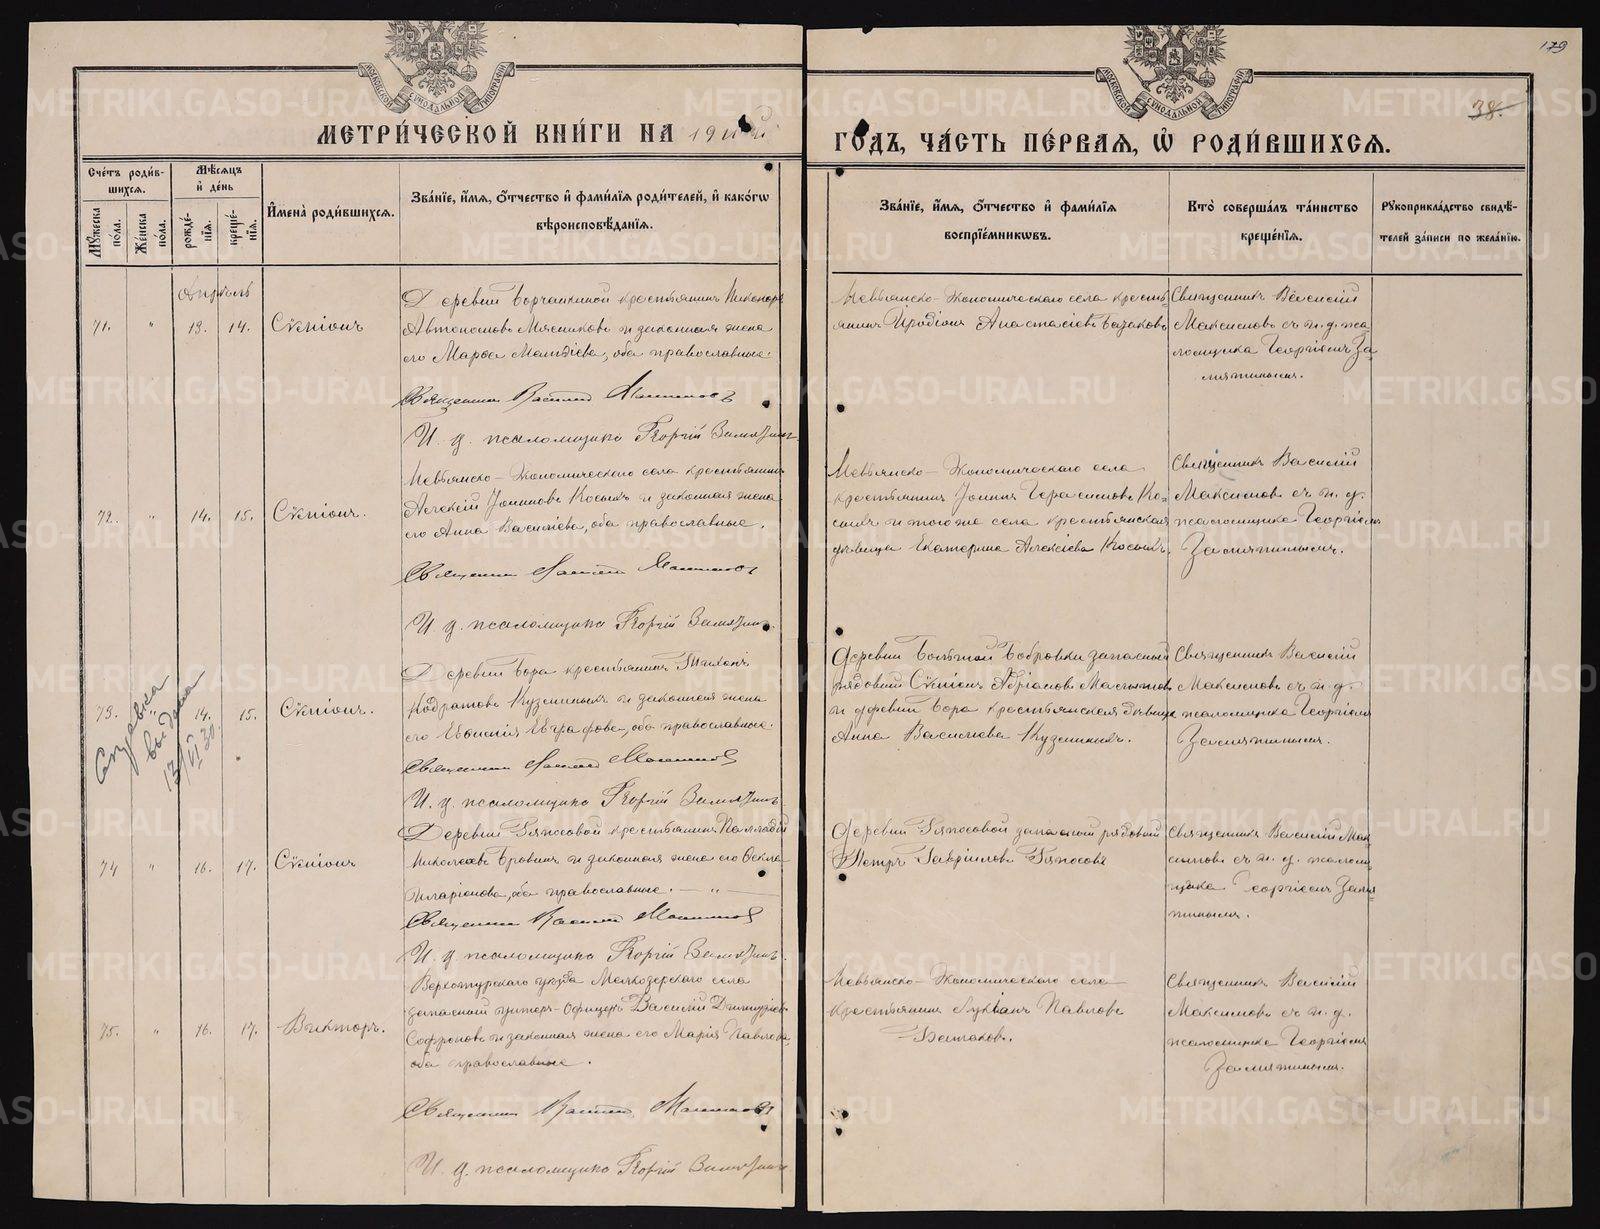 179
38.
МЕТРИ́ЧЕСКОЙ КНИ́ГИ НА 19
ГОДЪ, ЧА́СТЬ ПЕ́РВАЯ, Ѡ҆ РОДИ́ВШИХСѦ.
МОСКОВСКОЙ СѴНОДАЛЬНОЙ ТИПОГРАФІИ
МОСКОВСКОЙ СѴНОДАЛЬНОЙ ТИПОГРАФІИ
Сче́тъ роди́в-
шихсѧ.
Мꙋ́жеска по́ла.
Же́нска по́ла.
Мѣ́сѧцъ
и҆ де́нь
рожде́-
нїѧ.
креще́-
нїѧ.
И҆мена̀ роди́вшихсѧ.
Зва́нїе, и҆́мѧ, ѻ҆́тчество и҆ фами́лїѧ роди́телей, и҆ како́гѡ
вѣроисповѣ́данїѧ.
Зва́нїе, и҆́мѧ, ѻ҆́тчество и҆ фами́лїѧ
воспрїе́мникѡвъ.
Кто̀ соверша́лъ та́инство
креще́нїѧ.
Рꙋкоприкла́дство свидѣ́-
телей за́писи по жела́нїю.
Апрѣль
71. " 13. 14. Сѷміонъ
Деревни крестьянинъ Никаноръ
Автономовъ Мясниковъ и законная жена
его Марѳа, оба православные.
Священникъ Василій Максимовъ
И. д. псаломщика Георгій Замятинъ
Невьянско-Экономическаго села кресть-
янинъ Иродіонъ Анастасіевъ
Священникъ Василій
Максимовъ съ и. д. пса-
ломщика Георгіемъ За-
мятинымъ.
72. " 14. 15. Сѷміонъ.
Невьянско-Экономическаго села крестьянинъ
Алексій Іоанновъ Косыхъ и законная жена
его Анна Василіева, оба православные.
Священникъ Василій Максимовъ
И. д. псаломщика Георгій Замятинъ
Невьянско-Экономическаго села
крестьянинъ Іоаннъ Герасимовъ Ко-
сыхъ и того же села крестьянская
дѣвица Екатерина Алексіева Косыхъ.
Священникъ Василій
Максимовъ съ и. д.
псаломщика Георгіемъ
Замятинымъ.
Справка
выдана
13/VI 30
73. " 14. 15. Сѷміонъ.
Деревни Бора крестьянинъ Тихонъ
Кодратовъ Кузминыхъ и законная жена
его Евфимія Евграфова, оба православные.
Священникъ Василій Максимовъ
И. д. псаломщика Георгій Замятинъ
Деревни Большой Бобровки запасный
рядовой Сѷміонъ Адріановъ
и деревни Бора крестьянская дѣвица
Анна Василіева Кузминыхъ.
Священникъ Василій
Максимовъ съ и. д.
псаломщика Георгіемъ
Замятинымъ.
74 " 16. 17. Сѷміонъ
Деревни Ряпосовой крестьянинъ Палладій
Николаевъ и законная жена его Ѳекла
Иларіонова, оба православные. — " —
Священникъ Василій Максимовъ
И. д. псаломщика Георгій Замятинъ
Деревни Ряпосовой запасный рядовой
Петръ Гавріиловъ Ряпосовъ
Священникъ Василій Мак-
симовъ съ и. д. псалом-
щика Георгіемъ Замя-
тинымъ.
75. " 16. 17. Викторъ.
Верхотурскаго уѣзда Мелкозерскаго села
запасный унтеръ-офицеръ Василій Димитріевъ
Софроновъ и законная жена его Марія Павлова,
оба православные.
Священникъ Василій Максимовъ
И. д. псаломщика Георгій Замятинъ
Невьянско-Экономическаго села
крестьянинъ Лукіанъ Павловъ
Священникъ Василій
Максимовъ съ и. д.
псаломщика Георгіемъ
Замятинымъ.
METRIKI.GASO-URAL.RU